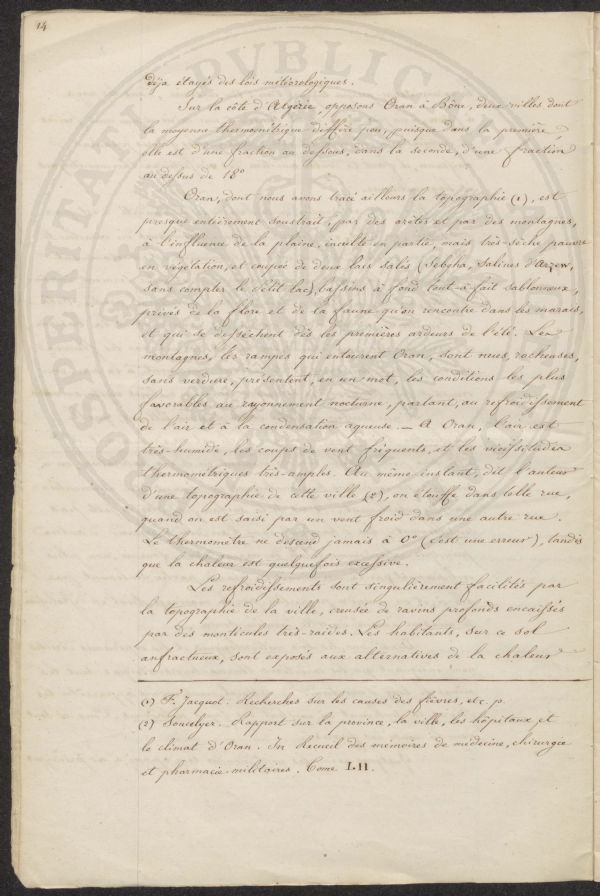 14
déja étayés des lois météorologiques.
Sur la côte d'Algérie, opposons Oran à Bône, deux villes dont
la moyenne thermométrique diffère peu, puisque dans la première,
elle est d'une fraction au dessous, dans la seconde, d'une fraction
au dessus de 18°
Oran, dont nous avons tracé ailleurs la topographie (1), est
presque entièrement soustrait, par des arêtes et par des montagnes,
à l'influence de la plaine, inculte en partie, mais très-sèche pauvre
en végétation, et coupée de deux lacs salés (Sebgha, Salines d'Arzew,
sans compter le petit lac), bassins à fond tout-à-fait sablonneux,
privés de la flore et de la faune qu'on rencontre dans les marais,
et qui se dessèchent dès les premières ardeurs de l'été. Les
montagnes, les rampes qui entourent Oran, sont nues, rocheuses,
sans verdure, présentent, en un mot, les conditions les plus
favorables au rayonnement nocturne, partant, au refroidissement
de l'air et à la condensation aqueuse. — A Oran, l'air est
très-humide, les coups de vent fréquents, et les vicissitudes
thermométriques très-amples. Au même instant, dit l'auteur
d'une topographie de cette ville (2), on étouffe dans telle rue,
quand on est saisi par un vent froid dans une autre rue.
Le thermomètre ne descend jamais à 0° (c'est une erreur), tandis
que la chaleur est quelquefois excessive.
Les refroidissements sont singulièrement facilités par
la topographie de la ville, creusée de ravins profonds encaissés
par des monticules très-raides. Les habitants, sur ce sol
anfractueux, sont exposés aux alternatives de la chaleur
(1) F. Jacquot. Recherches sur les causes des fièvres, etc. p.
(2) Soucelyer. Rapport sur la province, la ville, les hôpitaux et
le climat d'Oran. In Recueil des mémoires de médecine, chirurgie
et pharmacie militaires. Tome LII.